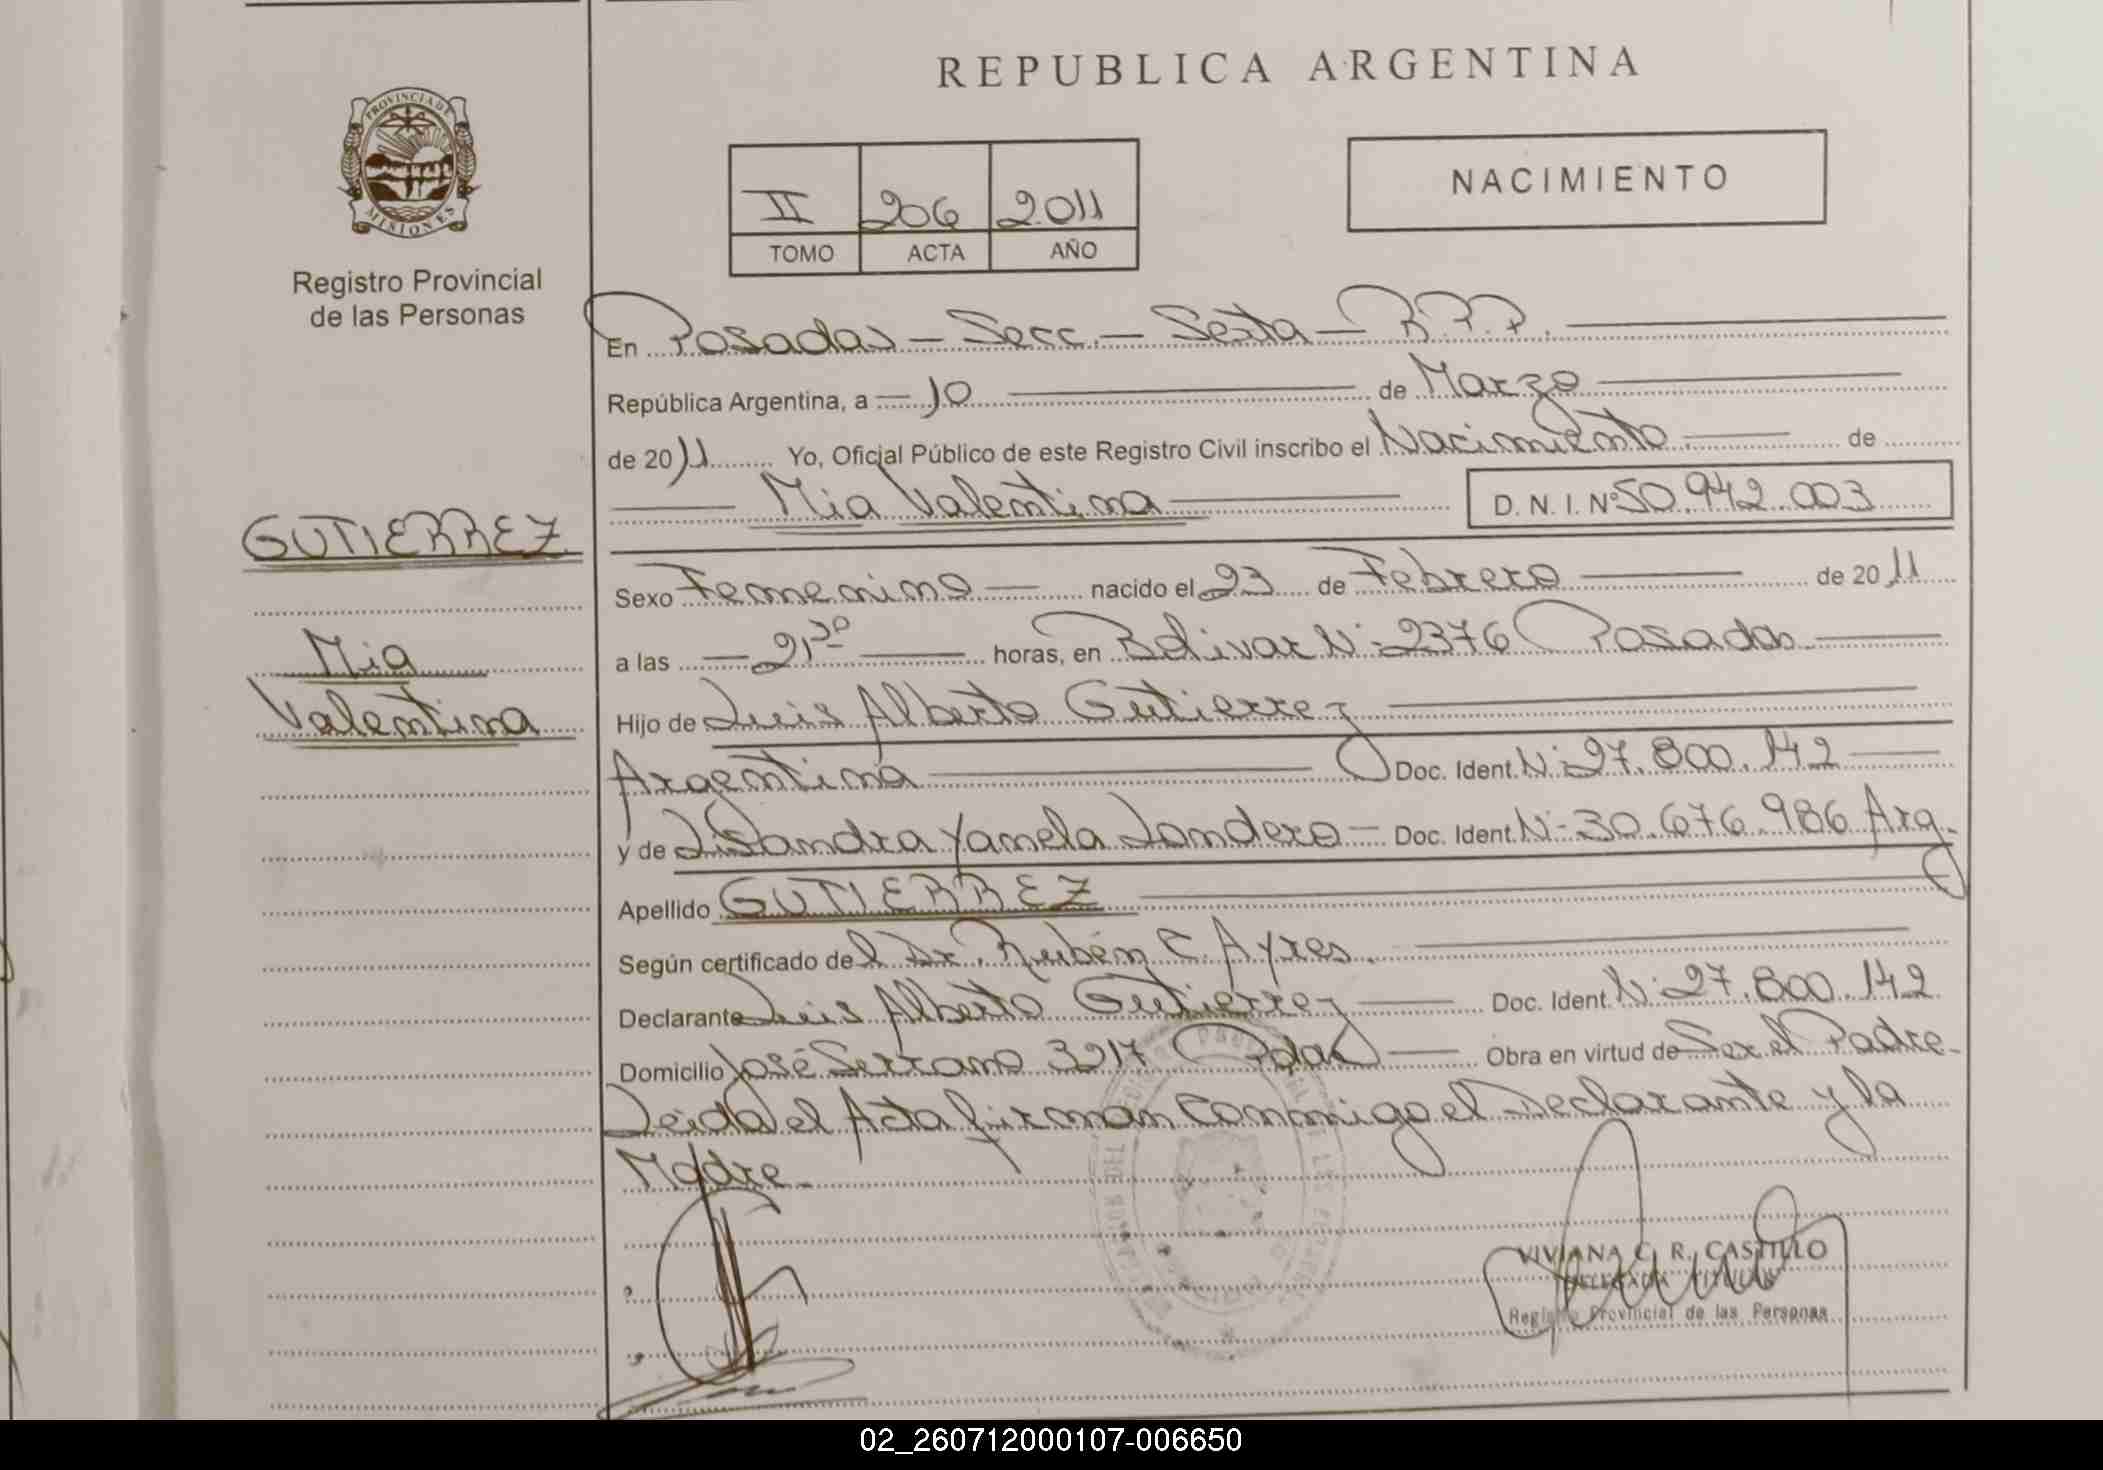 REPUBLICA ARGENTINA
PROVINCIA DE
MISIONES
Registro Provincial
de las Personas
II 206 2.011
TOMO ACTA AÑO
NACIMIENTO
GUTIERREZ
Mia
Valentina
En Posadas - Secc. - Sexta - R.P.P.
República Argentina, a - 10 de Marzo
de 2011 Yo, Oficial Público de este Registro Civil inscribo el Nacimiento de
Mia Valentina D. N. I. Nº 50.942.003
Sexo Femenino nacido el 23 de Febrero de 2011
a las 21³⁰ horas, en Bolivar Nº 2376 Posadas
Hijo de Luis Alberto Gutierrez
Argentina Doc. Ident. Nº 27.800.142
y de Lisandra Yamela Landero - Doc. Ident. Nº 30.676.986 Arg.
Apellido GUTIERREZ
Según certificado del Dr. Rubén C. Ayres.
Declarante Luis Alberto Gutierrez Doc. Ident. Nº 27.800.142
Domicilio José Serrano 3217 Pdas Obra en virtud de Ser el Padre-
Leida el Acta firman Conmigo el Declarante y la
Madre-
VIVIANA C. R. CASTILLO
DELEGADA TITULAR
Registro Provincial de las Personas
02_260712000107-006650